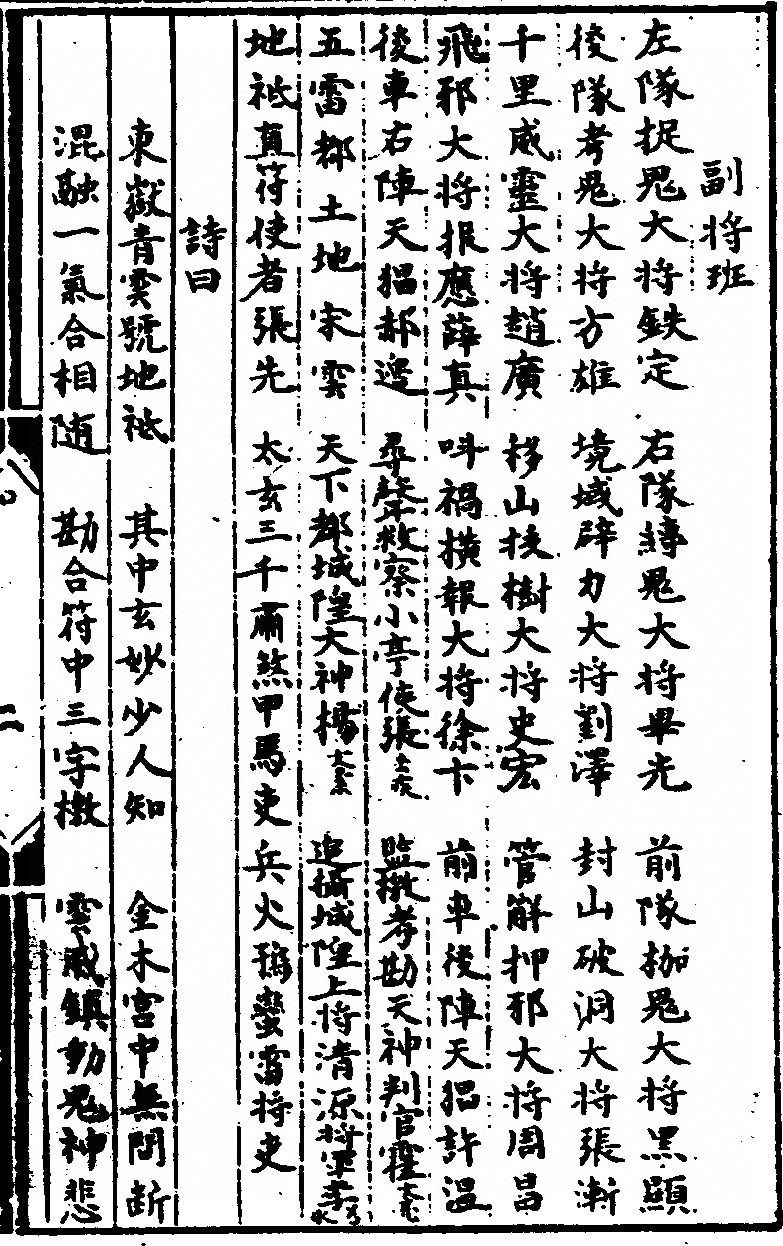 副将班
左隊捉鬼大将鉄定 右隊縛鬼大将畢光 前隊枷鬼大将黑顯
後隊考鬼大将方雄 境域辟力大将劉澤 封山破洞大将張漸
千里威靈大将趙廣 移山拔樹大将史宏 管觧押邪大将周昌
飛邪大将报應薛真 呌禍横報大将徐卞 前車後陣天猖許温
後車右陣天猖郝邊 尋聲救察小亭使張 監撽考勘天神判官霍
五雷都土地宋雲 天下都城隍大神楊 追攝城隍上将清源将軍李
地祇直符使者張先 太玄三千肅煞甲馬吏兵火鴉蠻雷将吏
詩曰
東嶽青雲號地祗 其中玄妙少人知 金木宫中無間断
混融一氣合相随 勘合符中三字檄 靈威鎮動鬼神悲
二